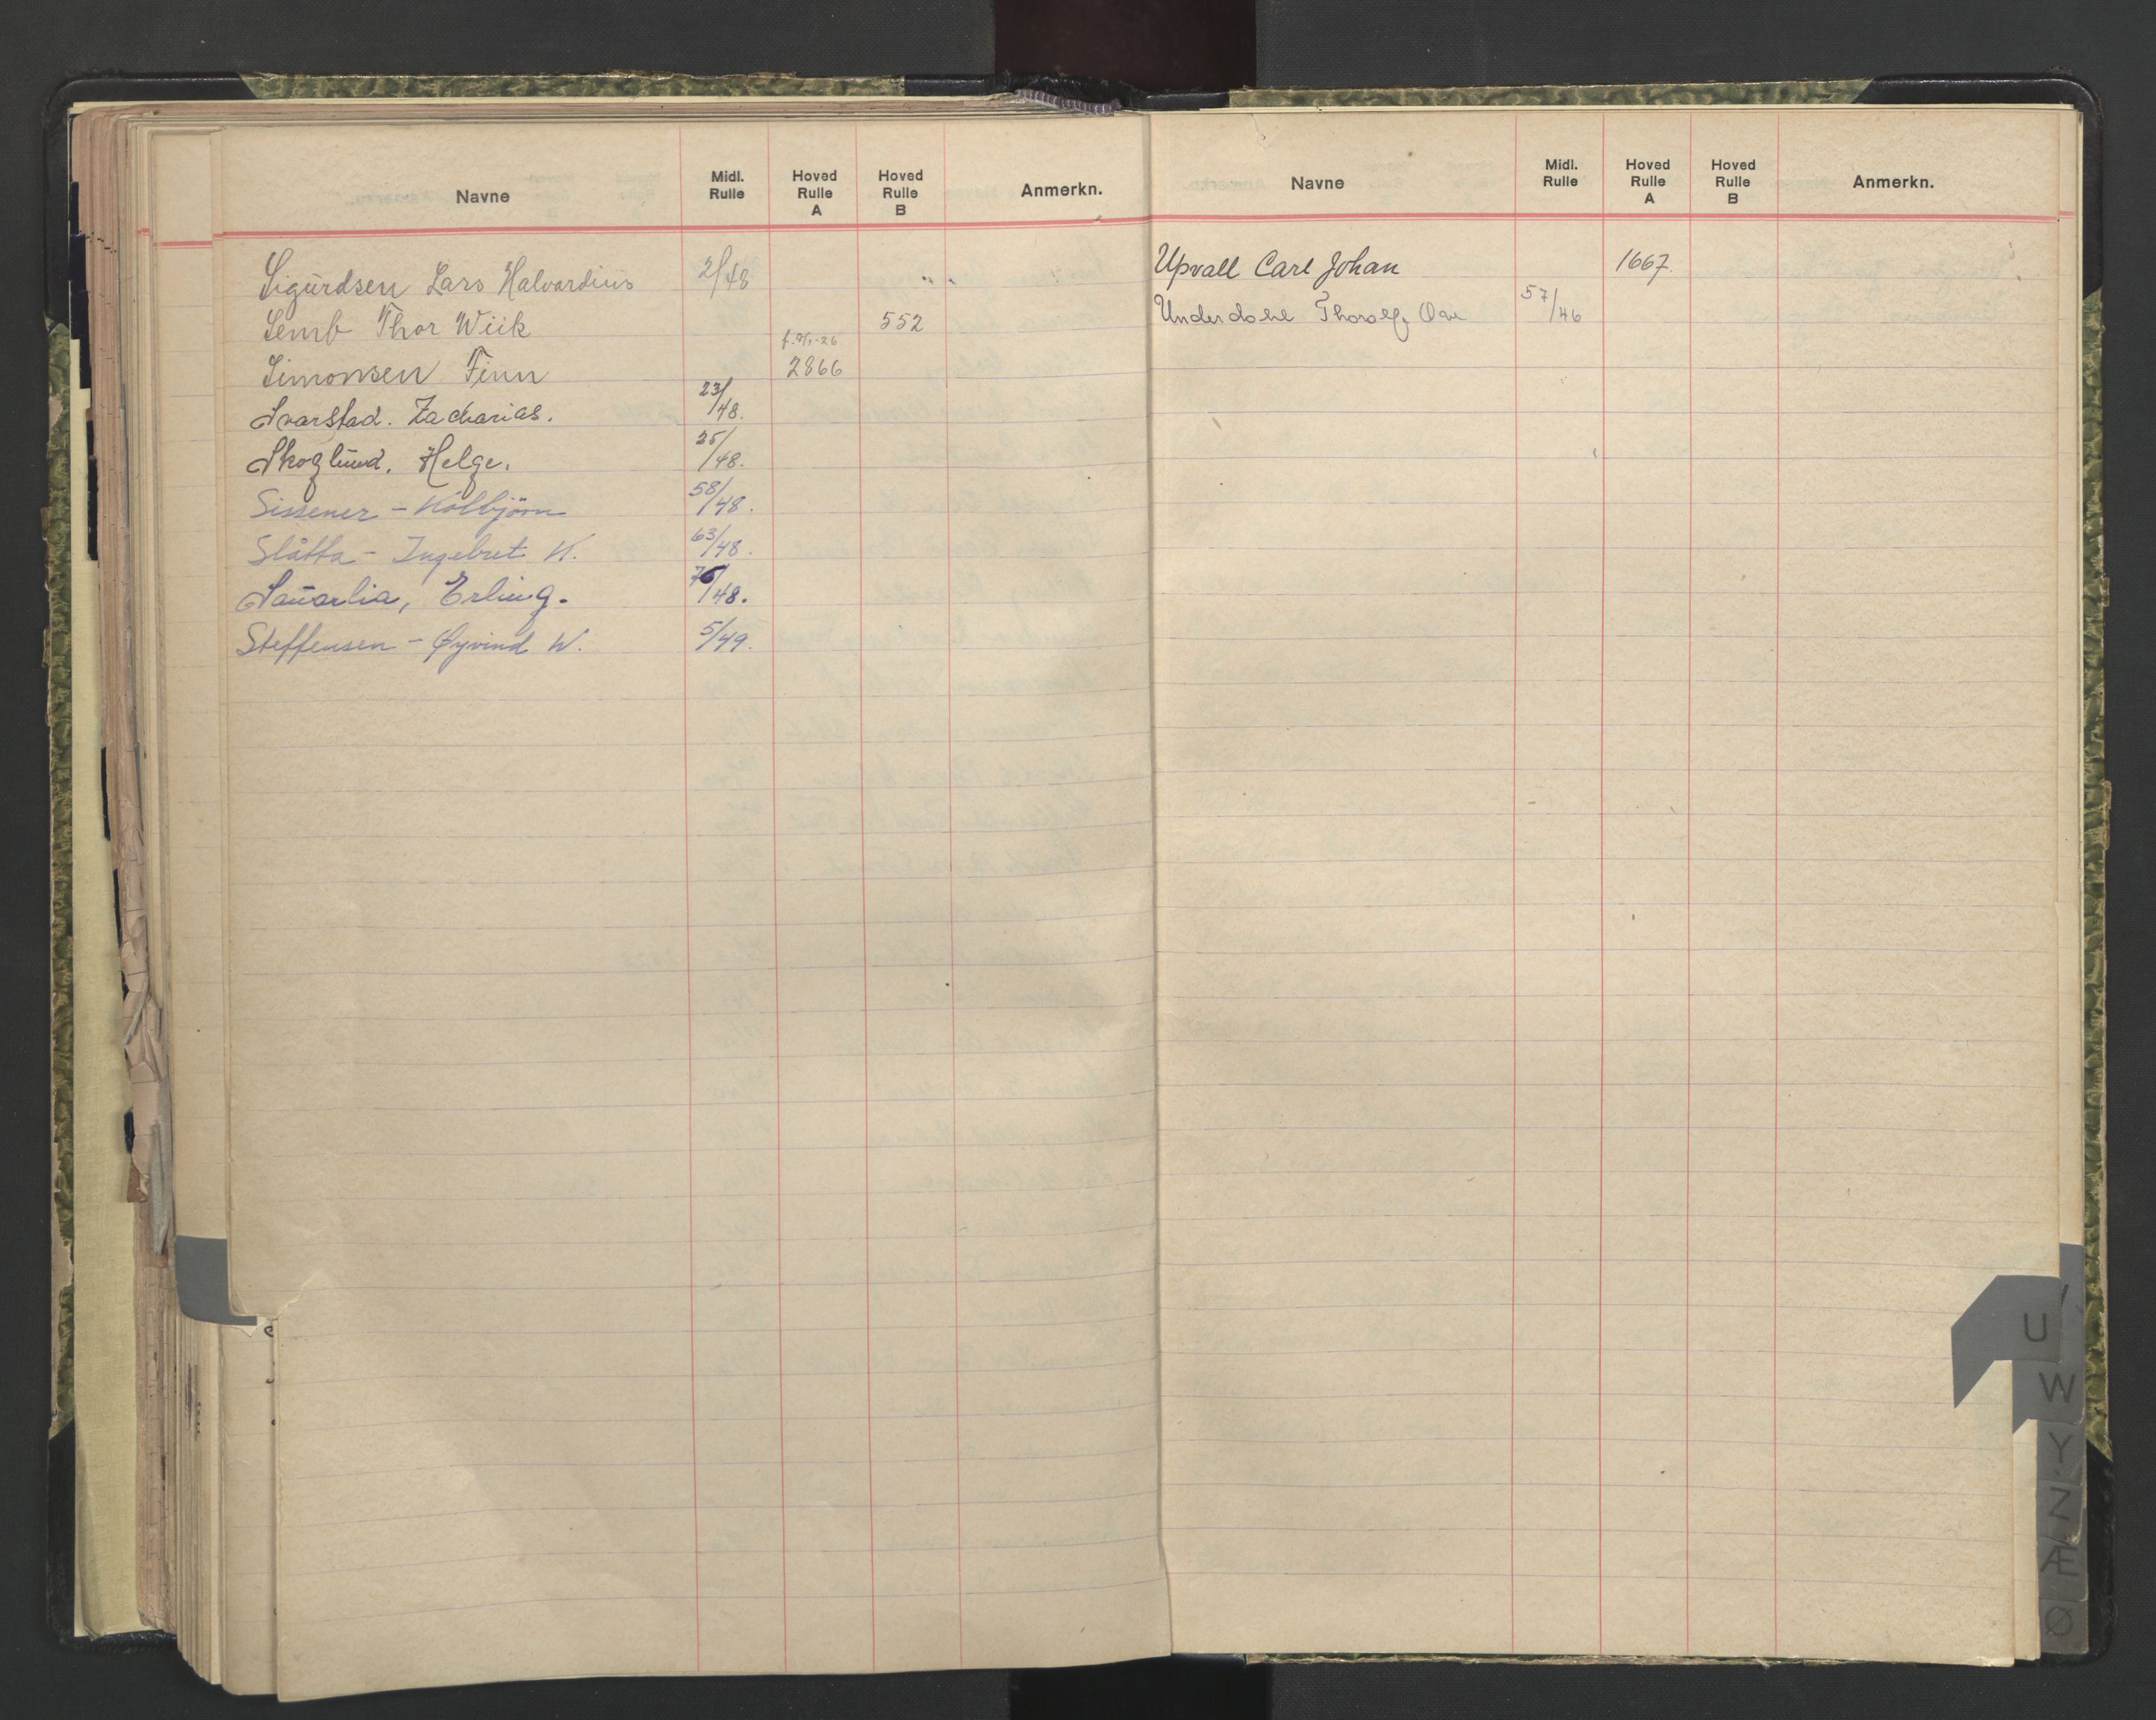 Navne Midl. Rulle Hoved Rulle A Hoved Rulle B Anmerkn.
Sigurdsen Lars Halvardius 2/48
Semb Thor Wiik 552
Simonsen Finn 2866
Svarstad. Zacharias. 23/48.
Skoglund. Helge. 25/48.
Sissener - Kolbjörn 58/48.
Slåtta - Ingebret K. 63/48.
Sauarlia, Erling. 76/48.
Steffensen - Øyvind W. 5/49.
Navne Midl. Rulle Hoved Rulle A Hoved Rulle B Anmerkn.
Upvall Carl Johan 1667.
Underdahl Thorolf 57/46
U
W
Y
Z
Æ
Ø